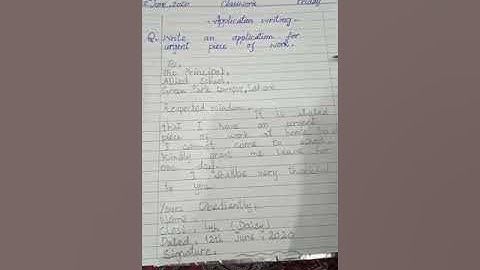 June, 2020 Classwork Friday
Application writing
Q. Write an application for
urgent piece of work.
To,
The Principal,
Allied School,
Green Park Campus,
Respected madam,
It is stated
that I have an urgent
piece of work at home. So
I cannot come to school.
Kindly grant me leave for
one day.
I shallbe very thankful
to you.
Yours Obediently,
Name =
Class: 4th (Daisy)
Dated. 12th June, 2020
Signature.